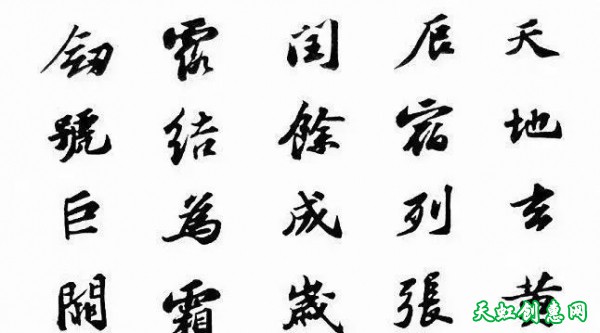 天地玄黄
辰宿列張
閏餘成歲
露結為霜
劒號巨闕
天虹创意网